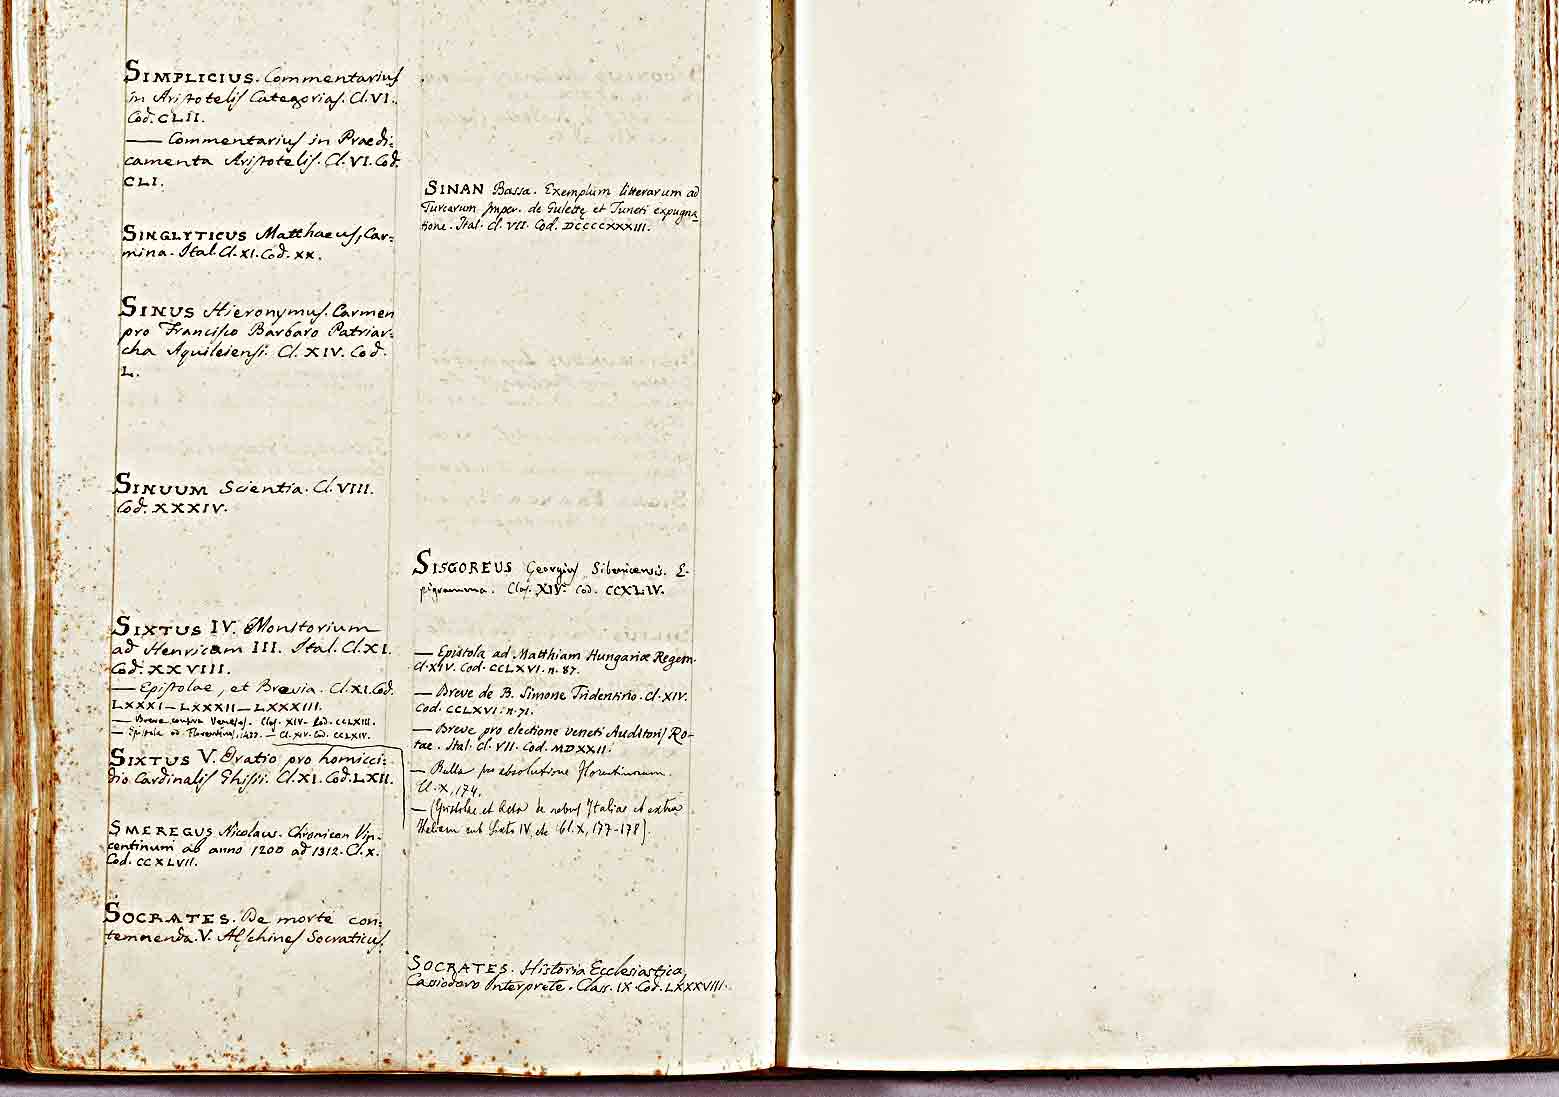 SIMPLICIUS. Commentarius
in Aristotelis Categorias. Cl. VI.
Cod. CLII.
— Commentarius in Praedi:
camenta Aristotelis. Cl. VI. Cod.
CLI.
SINGLYTICUS Matthaeus, Car:
mina. Ital. Cl. XI. Cod. XX.
SINUS Hieronymus. Carmen
pro Francisco Barbaro Patriar:
cha Aquileiensi. Cl. XIV. Cod.
L.
SINUUM Scientia. Cl. VIII.
Cod. XXXIV.
SIXTUS IV. Monitorium
ad Henricum III. Ital. Cl. XI.
Cod. XXVIII.
— Epistolae, et Brevia. Cl. XI. Cod.
LXXXI — LXXXII — LXXXIII.
— Breve contra Venetos. Clas. XIV. Cod. CCLXIII.
— Epistola ad Florentinos, — Cl. XIV. Cod. CCLXIV.
SIXTUS V. Oratio pro homici:
dio Cardinalis Ghisii. Cl. XI. Cod. LXII.
SMEREGUS Nicolaus. Chronicon Vin:
centinum ab anno 1200 ad 1312. Cl. X.
Cod. CCXLVII.
SOCRATES. De morte con:
temnenda. V. AEschines Socraticus.
SINAN Bassa. Exemplum litterarum ad
Turcarum Imper. de Gulettę et Tuneti expugna
tione. Ital. Cl. VII. Cod. DCCCCXXXIII.
SISGOREUS Georgius Sibenicensis. E-
pigramma. Clas. XIV. Cod. CCXLIV.
— Epistola ad Matthiam Hungariæ Regem.
Cl. XIV. Cod. CCLXVI. n. 87.
— Breve de B. Simone Tridentino. Cl. XIV.
Cod. CCLXVI. n. 71.
— Breve pro electione veneti Auditoris Ro-
tae. Ital. Cl. VII. Cod. MDXXII.
— Bulla pro absolutione Florentinorum.
Cl. X, 174.
— (Epistolae et Acta de rebus Italiae et extra
Italiam sub Sixto IV, etc Cl. X, 177-178).
SOCRATES. Historia Ecclesiastica,
Cassiodoro Interprete. Class. IX. Cod. LXXXVIII.